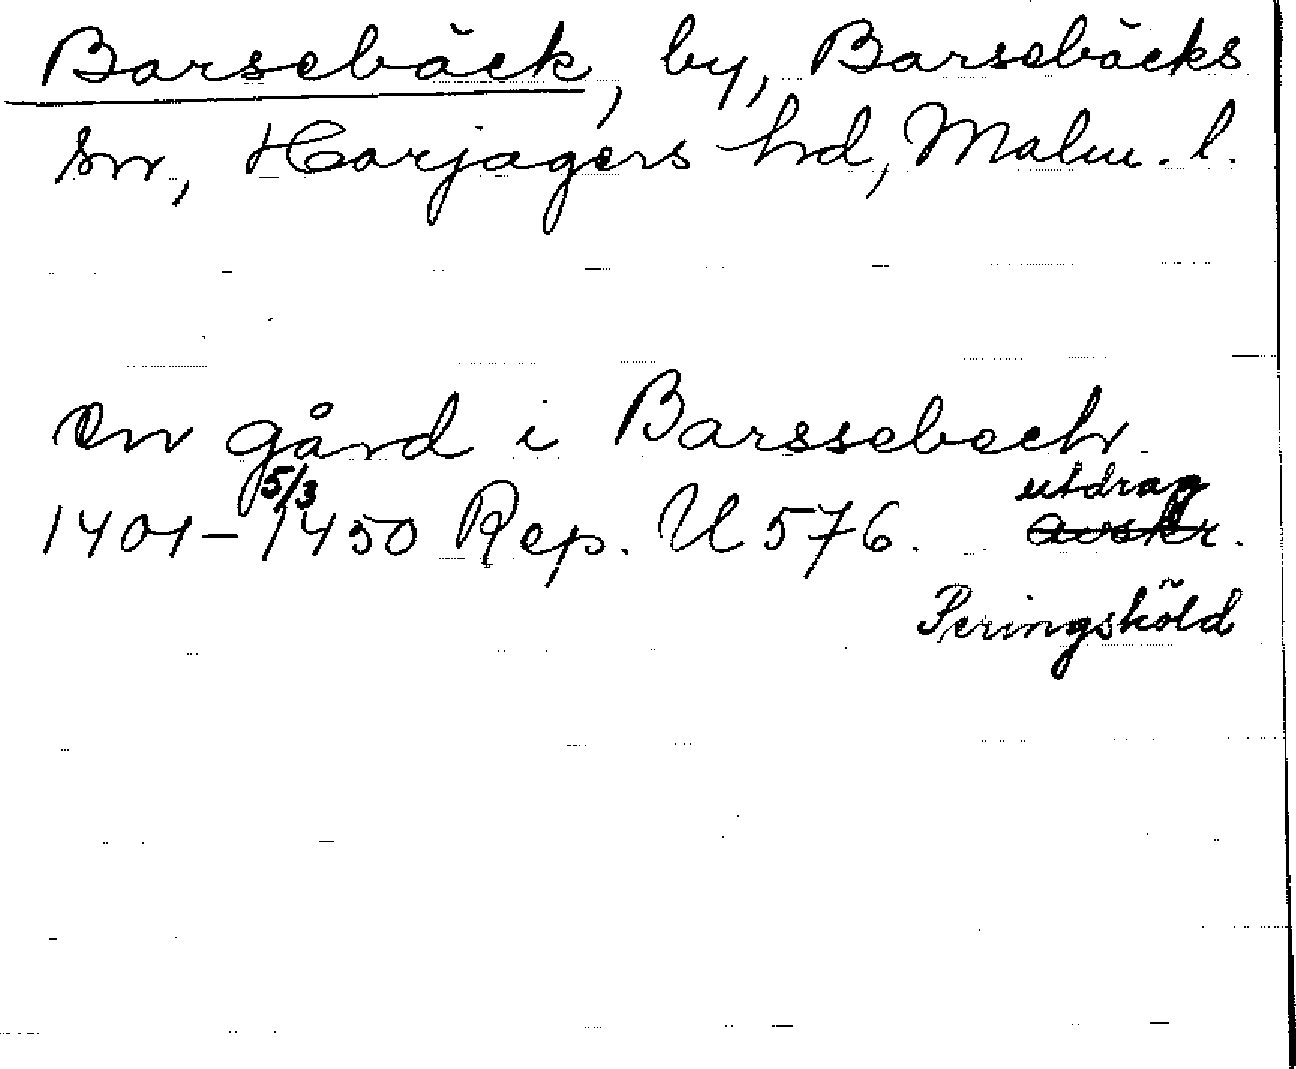 Barsebäck, by, Barsebäcks
sn, Harjagers hd, Malm. l.
En gård i Barssebech
5/3 utdrag
1401-1450 Rep. II 576. avskr.
Peringsköld